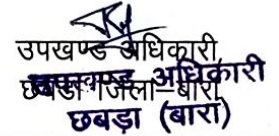 उपखण्ड अधिकारी
छबडा जिला–बारां
उपखण्ड अधिकारी
छबड़ा (बारा)